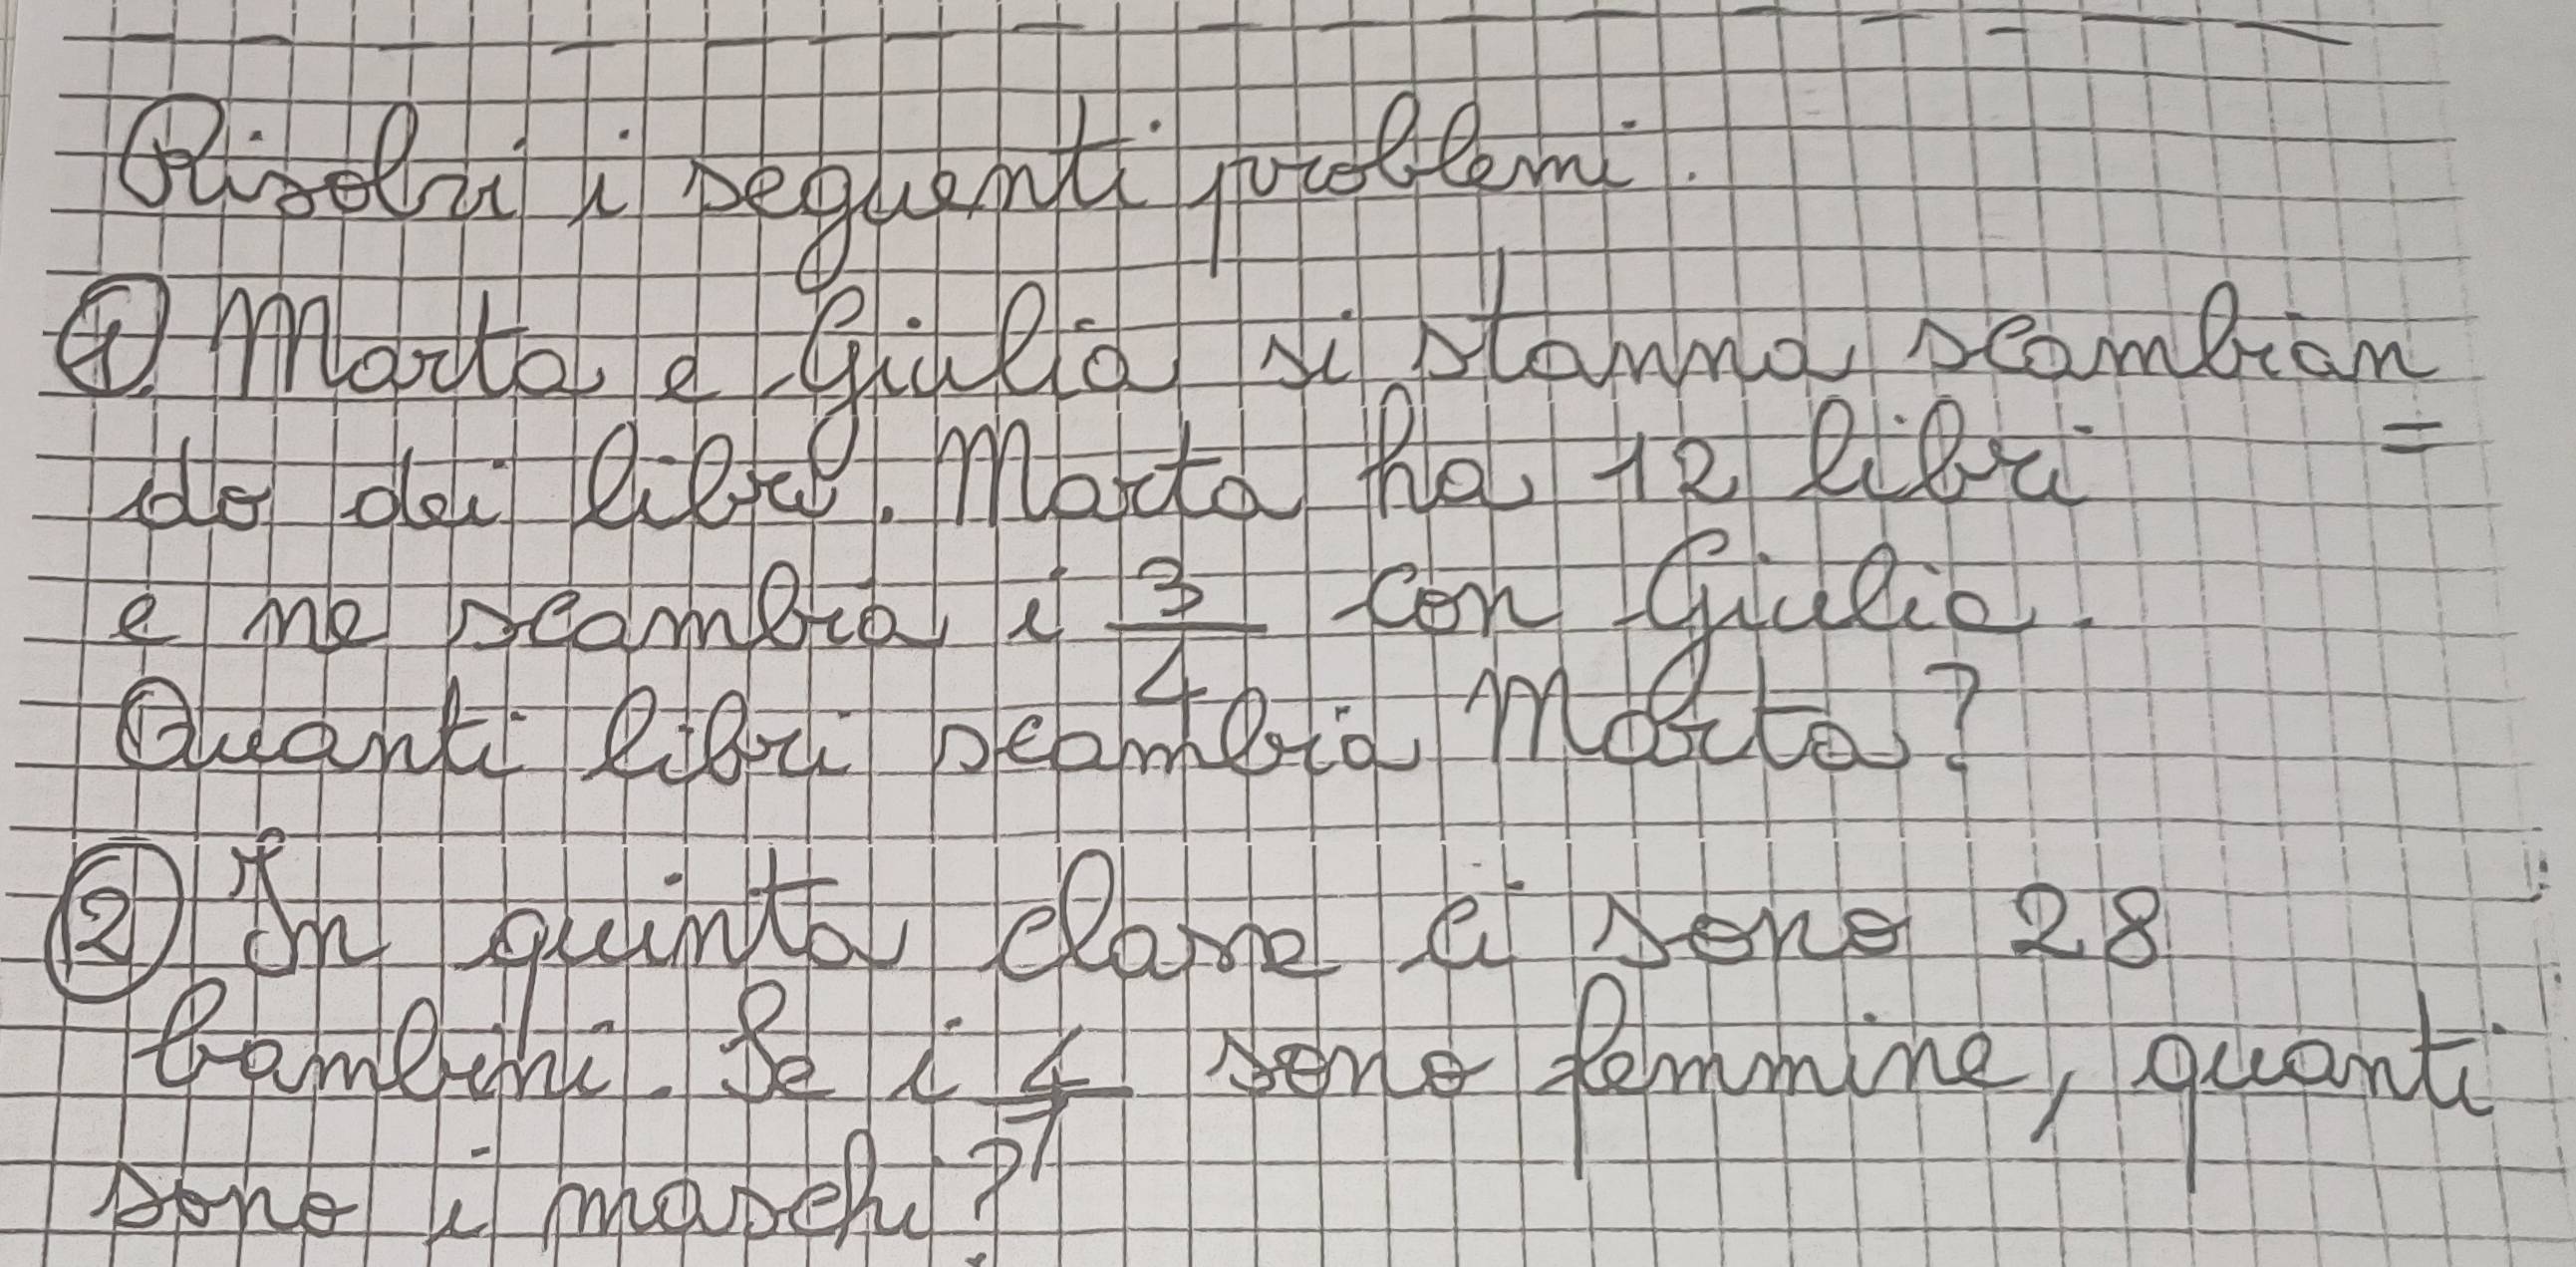 Risolvi i seguenti problemi.
1 Marta e Giulia si stanno scambian
do dei libri. Marta ha 12 libri =
e ne scambia i 3/4 con Giulia.
Quanti libri scambia Marta?
2 In quinta classe ci sono 28
bambini. Se i 4/7 sono femmine, quanti
sono i maschi?